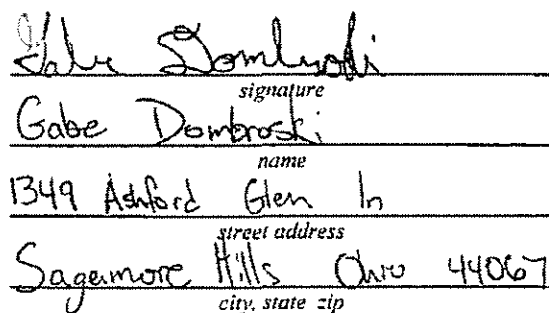 Gabe Dombroski
signature
Gabe Dombroski
name
1349 Ashford Glen ln
street address
Sagamore Hills Ohio 44067
city, state zip